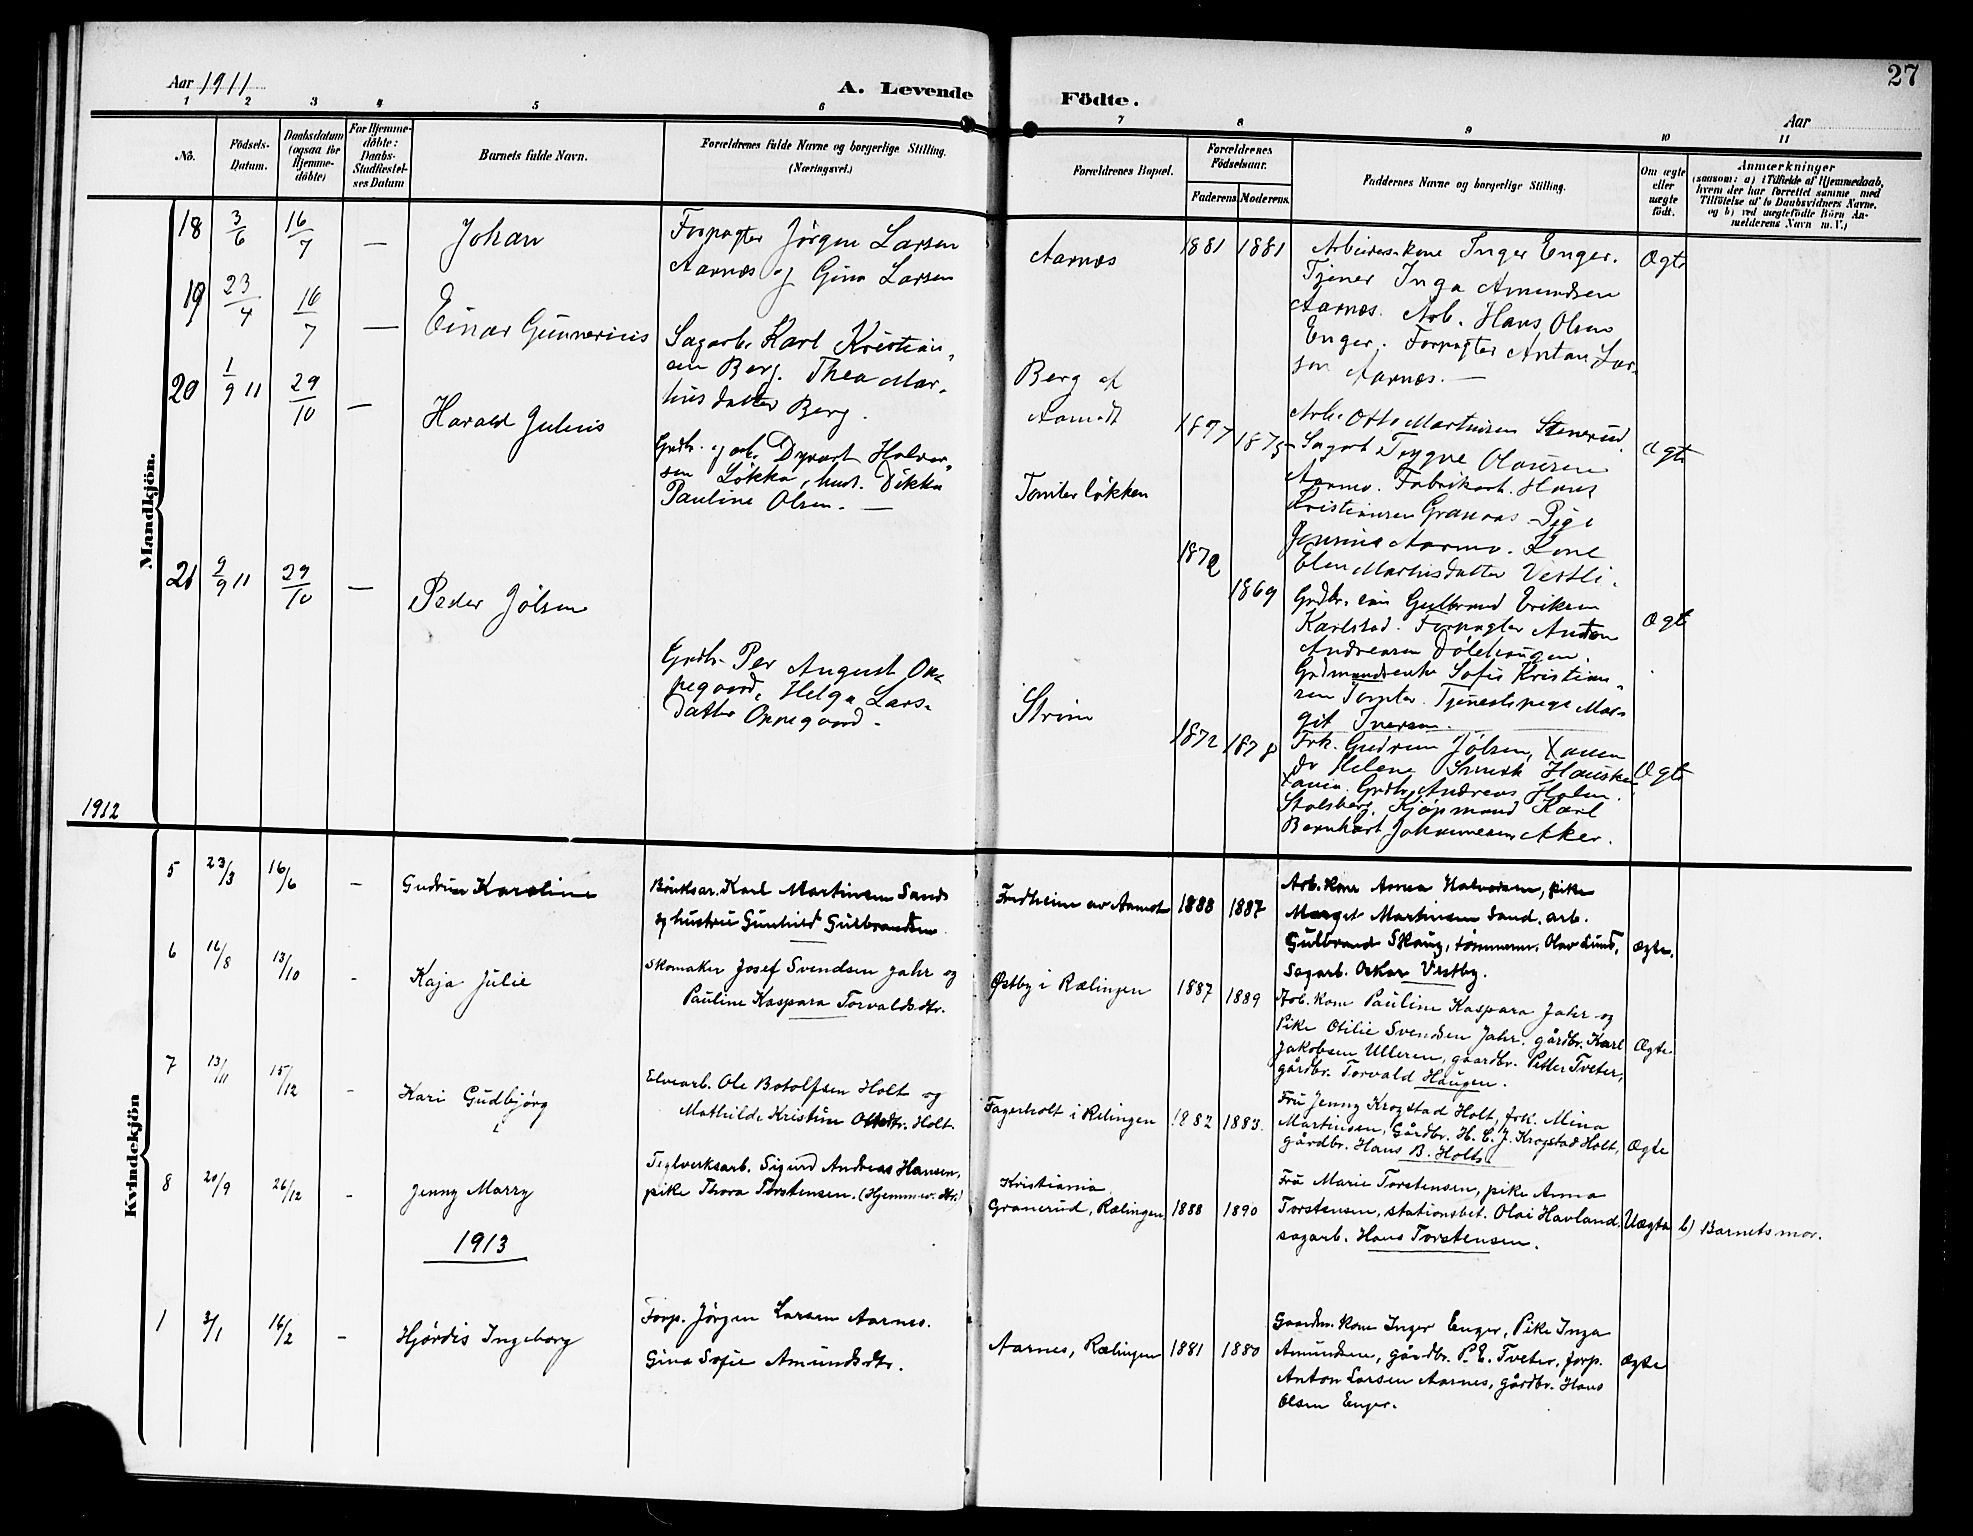 27
Aar 1911
A. Levende Födte.
Aar
1 2 3 4 5 6 7 8 9 10 11
No.
Födsels-
Datum.
Daabsdatum
(ogsaa for
Hjemme-
döbte)
For Hjemme-
döbte:
Daabs-
Stadfæstel-
ses Datum
Barnets fulde Navn.
Forældrenes fulde Navne og borgerlige Stilling.
(Næringsvei.)
Forældrenes Bopæl.
Forældrenes
Födselsaar.
Faderens. Moderens.
Faddernes Navne og borgerlige Stilling.
Om ægte
eller
uægte
födt.
Anmærkninger
(saasom: a) i Tilfælde af Hjemmedaab,
hvem der har forrettet samme med
Tilföielse af to Daabsvidners Navne.
og b) ved uægtefödte Börn An-
melderens Navn m. V.)
Mandkjön.
18 3/6 16/7 — Johan
Forpagter Jörgen Larsen
Aarnæs og Gina Larsen
Aarnæs
1881 1881
Arbeiderskone Inger Enger.
Tjener Inga Amundsen
Aarnæs. Arb. Hans Olsen
Enger. Forpagter Anton Lar-
sen Aarnæs. —
Ægte
19 23/4 16/7 — Einar Gunnerius
Sagarb. Karl Kristian-
sen Berg. Thea Mar-
tinsdatter Berg.
Berg af
Aamodt
1877 1875
Arb. Otto Martinsen Stenerud.
Sagarb. Trygve Olausen
Aarmo. Fabrikarb. Hans
Kristiansen Granaas. Pige
Jensine Aarmo. Kone
Elen Martinsdatter Vestli.
Ægte
20 1/9 11 29/10 — Harald Julius
Grdbr. og arb. Dyvart Halvor-
sen Løkka, hust. Dikka
Pauline Olsen. —
Tomter løkken
1872 1869
Grdbr. Gulbrand Eriksen
Karlstad. Forpagter Anton
Andreasen Dølehaugen.
Grdmandsenke Sofie Kristian-
sen Tomter. Tjenestpige Mar-
git Iversen.
Ægte
21 2/9 11 29/10 — Peder Jølsen
Grdbr. Per August Op-
pegaard, Helga Lars-
datter Oppegaard.
Strøm
1872 1878
Frk. Gudrun Jølsen,
Helene
Grdbr. Andreas Holm.
Stalsberg, Kjöpmand Karl
Bernhart Johannesen Aker.
Ægte
1912
Kvindekjön
5 23/3 16/6 – Gudrun Karoline
Bruksar. Karl Martinsen Sand
og hustru Gunhild Gulbrandsen.
Fredheim av Aamot 1888 1887
Arb. kone Anna Halvorsen, pike
Marget Martinsen Sand, arb.
Gulbrand Skaug, tömmerm. Olav Lund,
Sagarb. Oskar Vestby.
Ægte.
6 16/8 13/10 – Kaja Julie
Skomaker Josef Svendsen Jahr og
Pauline Kaspara Torvaldsdtr.
Østby i Rælingen 1887 1889
Arb. kone Pauline Kaspara Jahr og
Pike Otilie Svendsen Jahr, gårdbr. Karl
Jakobsen Ulleren, gaardbr. Petter Tveter,
gårdbr. Torvald Haugen.
Ægte
7 13/11 15/12 – Kari Gudbjörg
Elvearb. Ole Botolfsen Holt og
Mathilde Kristine Olsdtr. Holt.
Fagerholt i Relingen 1882 1883.
Fru Jenny Krogstad Holt, frk. Mina
Martinsen, Gårdbr. H. C. J. Krogstad Holt,
gårdbr. Hans B. Holt.
Ægte
8 20/9 26/12 – Jenny Marry
Teglverksarb. Sigurd Andreas Hansen,
pike Thora Torstensen. (Hjemmev. dtr.)
Kristiania,
Granerud, Rælingen. 1888 1890
Fru Marie Torstensen, pike Anna
Torstensen, stationsbet. Olai Havland,
sagarb. Hans Torstensen.
Uægte b) Barnets mor.
1913
1 3/1 16/2 – Hjördis Ingeborg
Forp. Jörgen Larsen Aarnes.
Gina Sofie Amundsdtr.
Aarnes, Rælingen 1881 1880
Gaardm. kone Inger Enger, Pike Inga
Amundsen, gårdbr. P. E. Tveter, forp.
Anton Larsen Aarnes, gårdbr. Hans
Olsen Enger.
Ægte